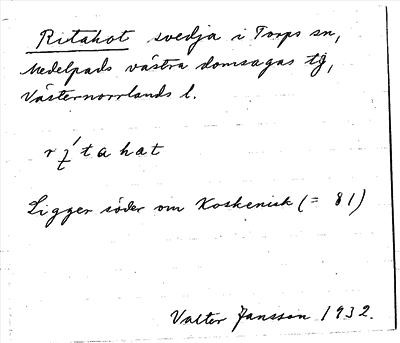 Ritahot svedja i Torps sn,
Medelpads västra domsagas tg,
Västernorrlands l.
r ɪ́ t a h a t
Ligger söder om Koskenisk (= 81)
Valter Jansson 1932.